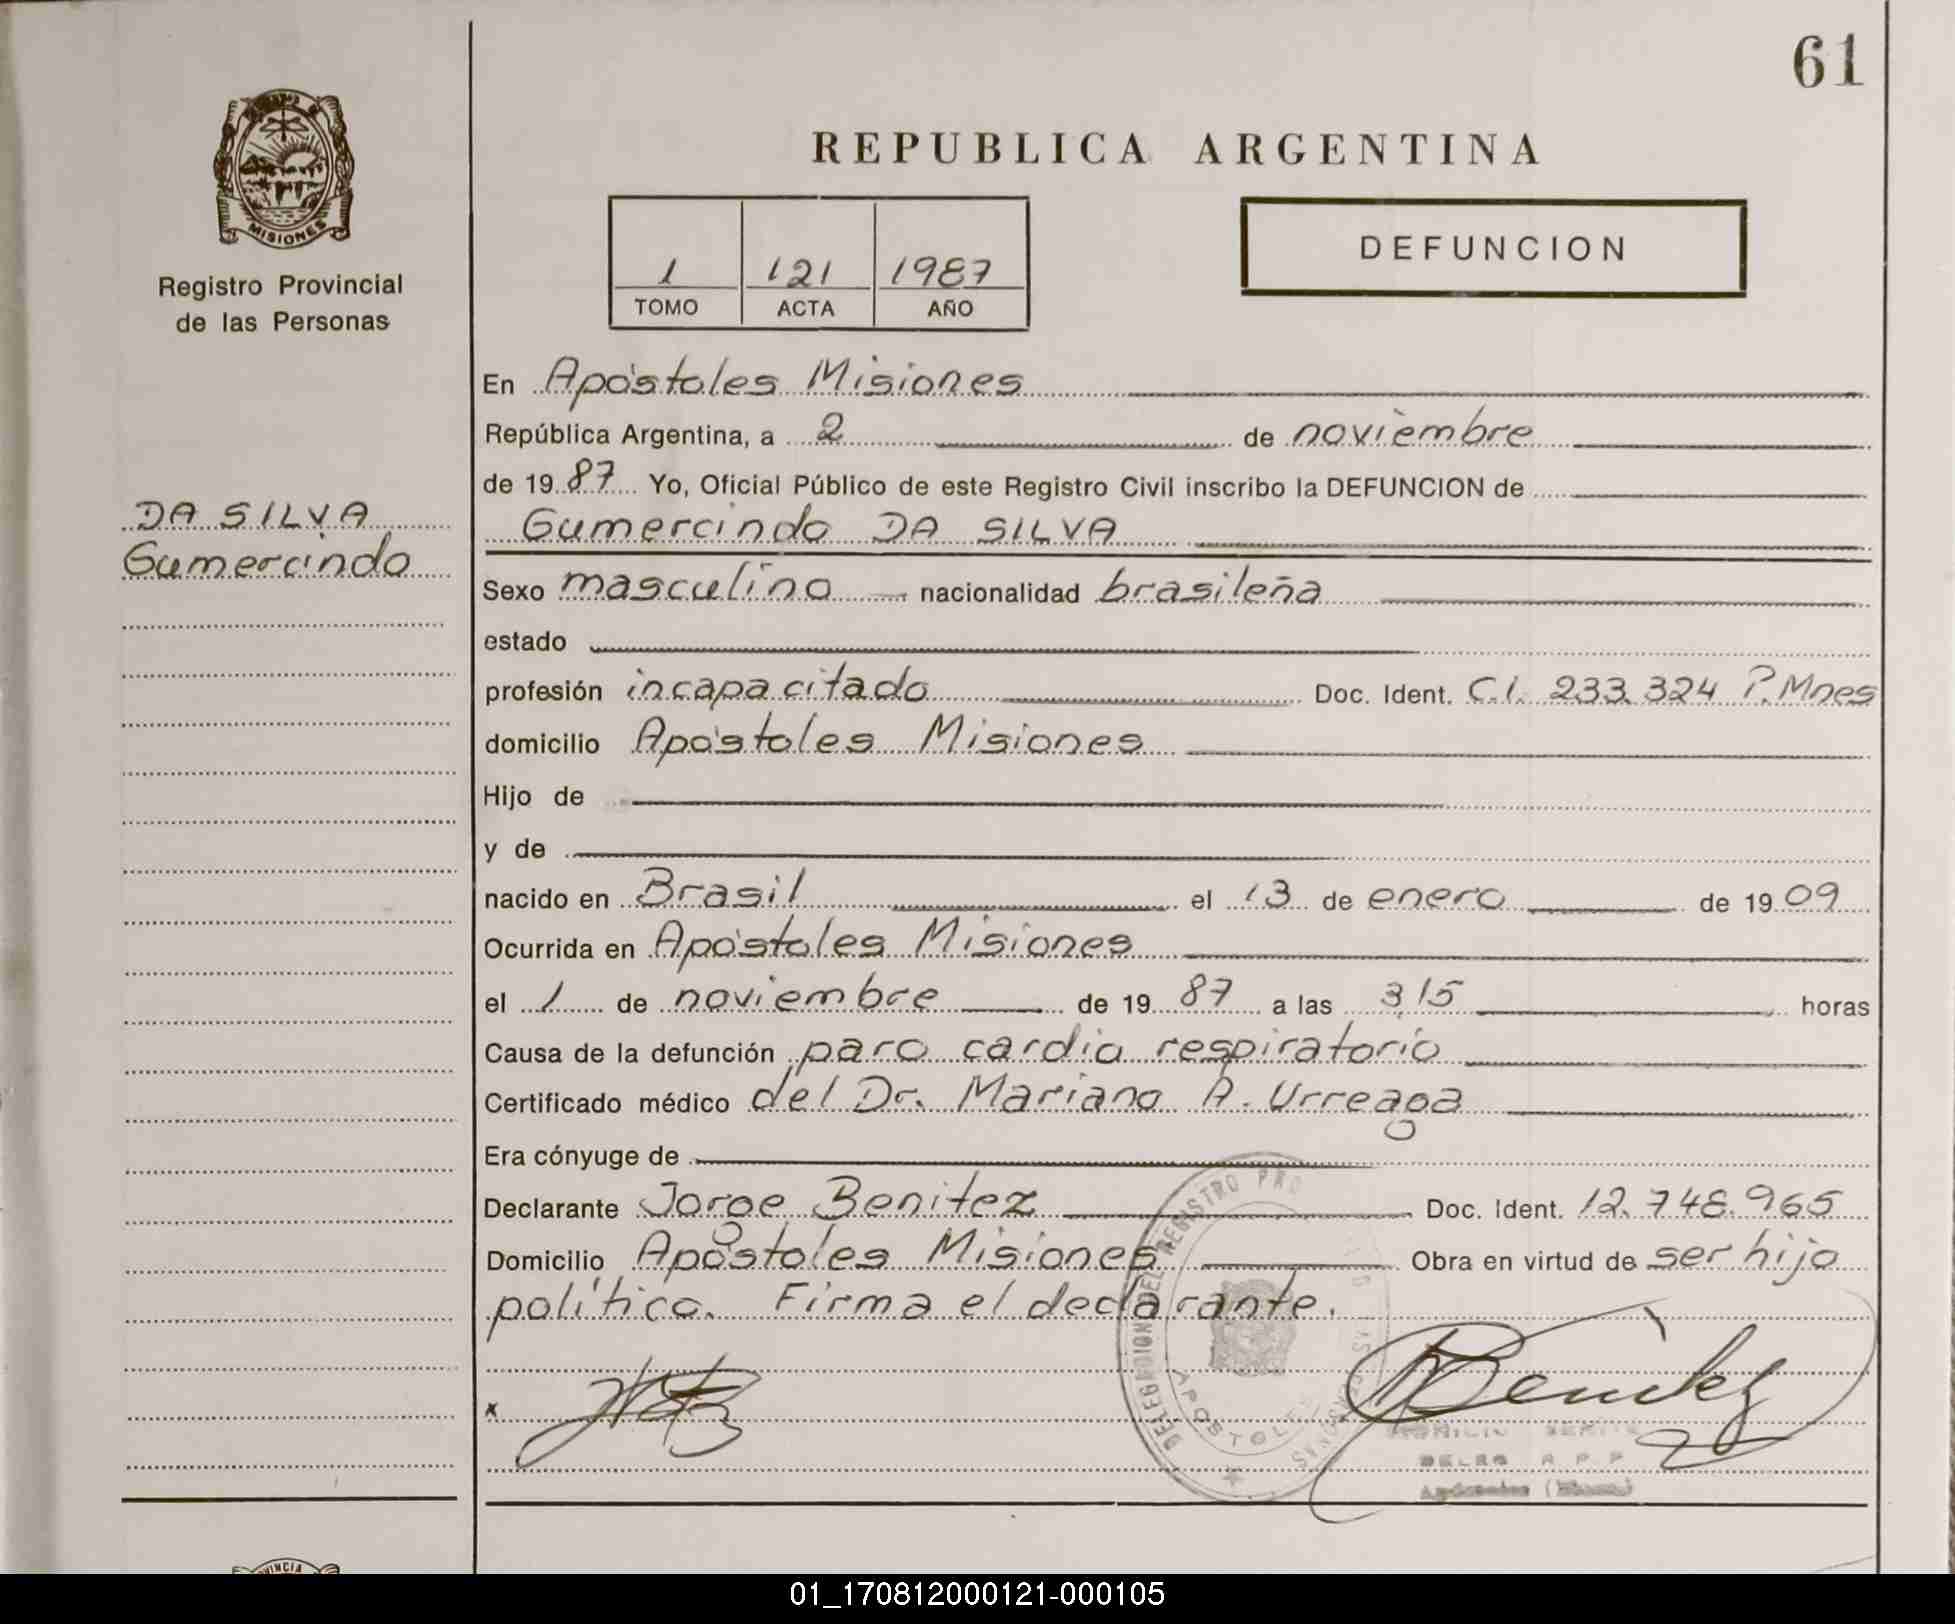 61
MISIONES
Registro Provincial
de las Personas
DA SILVA
Gumercindo
REPUBLICA ARGENTINA
1 121 1987
TOMO ACTA AÑO
DEFUNCION
En Apóstoles Misiones
República Argentina, a 2 de noviembre
de 1987 Yo, Oficial Público de este Registro Civil inscribo la DEFUNCION de
Gumercindo DA SILVA
Sexo masculino nacionalidad brasileña
estado
profesión incapacitado Doc. Ident. C.I. 233.324 P. Mnes
domicilio Apóstoles Misiones
Hijo de
y de
nacido en Brasil el 13 de enero de 1909
Ocurrida en Apóstoles Misiones
el 1 de noviembre de 1987 a las 3,15 horas
Causa de la defunción paro cardio respiratorio
Certificado médico del Dr. Mariano A. Urreaga
Era cónyuge de
Declarante Jorge Benitez Doc. Ident. 12.748.965
Domicilio Apóstoles Misiones Obra en virtud de ser hijo
político. Firma el declarante.
DELEGACION DEL REGISTRO PRO
APOSTOLES
x
Benitez
01_170812000121-000105